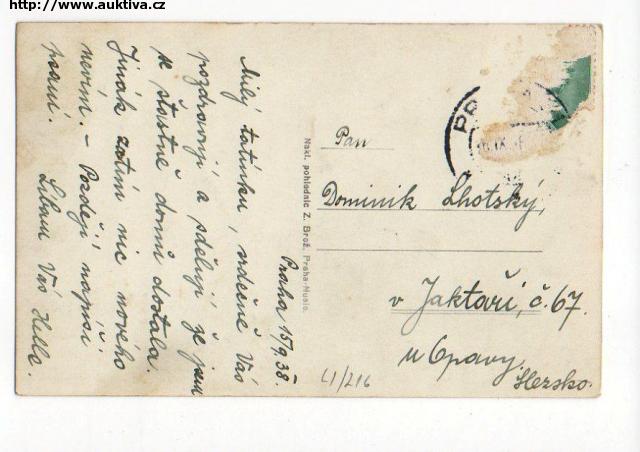 http://www.auktiva.cz
Praha 15/9.38.
Milý tatínku, srdečně Vás
pozdravuji a sděluji že jsem
se šťastně domů dostala.
Jinak zatím nic nového
nevím. - Později napíši
psaní.
Líbám Vás
Nakl. pohlednic Z. Brož, Praha-Nusle.
PR
Pan
Dominik Lhotský,
v Jaktaři, č. 67.
u Opavy,
Slezsko.
L1/216